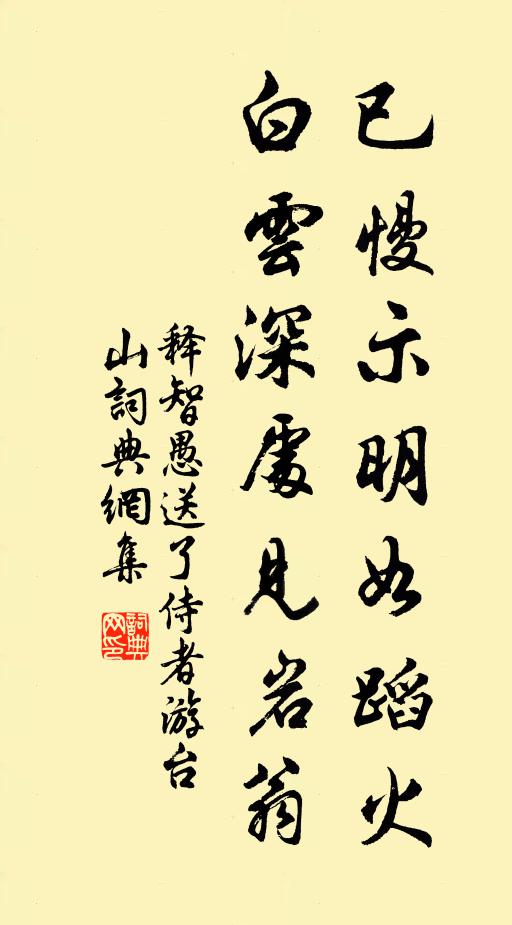 已慢示明如蹈火
白雲深處見岩翁
释智愚送了侍者游台
山詞典網集
詞典
网印